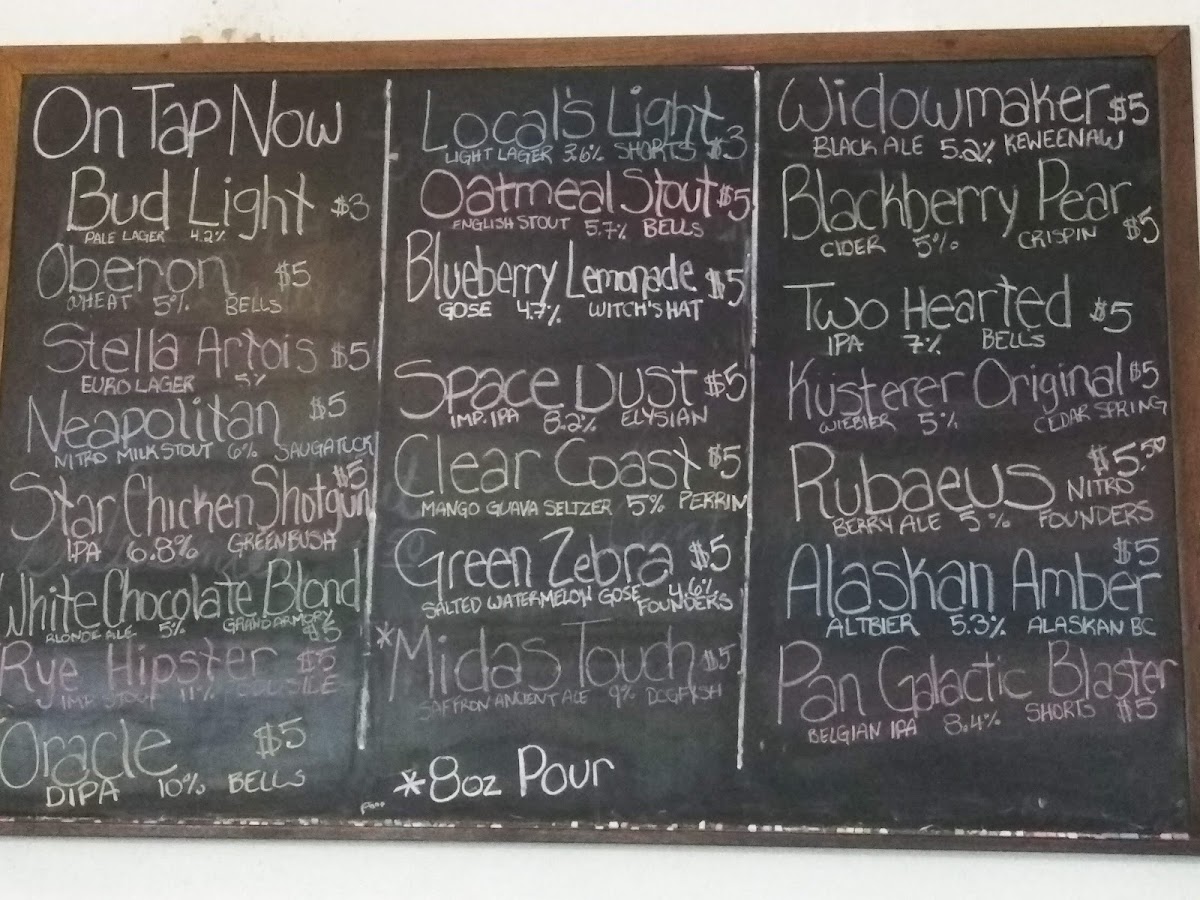 On Tap Now
Bud Light $3
PALE LAGER 4.2%
Oberon $5
WHEAT 5% BELLS
Stella Artois $5
EURO LAGER 5%
Neapolitan $5
NITRO MILK STOUT 6% SAUGATUCK
Star Chicken Shotgun $5
IPA 6.8% GREENBUSH
White Chocolate Blond
BLONDE ALE 5% GRAND ARMORY $5
Rye Hipster $5
IMP. STOUT 11%
Oracle $5
DIPA 10% BELLS
Local's Light
LIGHT LAGER 3.6% SHORTS $3
Oatmeal Stout $5
ENGLISH STOUT 5.7% BELLS
Blueberry Lemonade $5
GOSE 4.7% WITCH'S HAT
Space Dust $5
IMP. IPA 8.2% ELYSIAN
Clear Coast $5
MANGO GUAVA SELTZER 5% PERRIN
Green Zebra $5
SALTED WATERMELON GOSE 4.6% FOUNDERS
*Midas Touch $5
SAFFRON ANCIENT ALE 9% DOGFISH
*8oz Pour
Widowmaker $5
BLACK ALE 5.2% KEWEENAW
Blackberry Pear $5
CIDER 5% CRISPIN
Two Hearted $5
IPA 7% BELLS
Küsterer Original $5
WIEBIER 5% CEDAR SPRING
Rubaeus $5.50 NITRO
BERRY ALE 5% FOUNDERS
Alaskan Amber $5
ALTBIER 5.3% ALASKAN BC
Pan Galactic Blaster
BELGIAN IPA 8.4% SHORTS $5